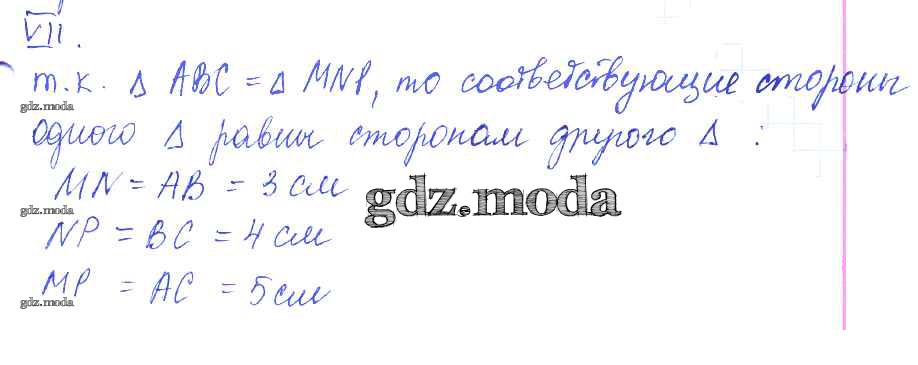 VII.
т.к. Δ ABC = Δ MNP, то соответствующие стороны
gdz.moda
одного Δ равны сторонам другого Δ :
MN = AB = 3 см
gdz.moda
gdz.moda
NP = BC = 4 см
MP = AC = 5 см
gdz.moda